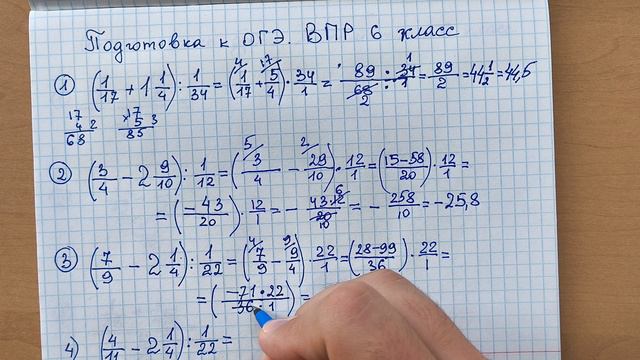 Подготовка к ОГЭ. ВПР 6 класс
① (1/17 + 1 1/4) : 1/34 = (1/17 + 5/4) · 34/1 = 89 · 34/68 · 1 = 89/2 = 44 1/2 = 44,5
17 4 2 68 ×17 5 3 85
② (3/4 − 2 9/10) : 1/12 = (3/4 − 29/10) · 12/1 = (15−58/20) · 12/1 =
= (−43/20) · 12/1 = − 43·12/20 = − 258/10 = −25,8
③ (7/9 − 2 1/4) : 1/22 = (7/9 − 9/4) · 22/1 = (28−99/36) · 22/1 =
= (−71·22/36 · 1) =
4) (4/11 − 2 1/4) : 1/22 =